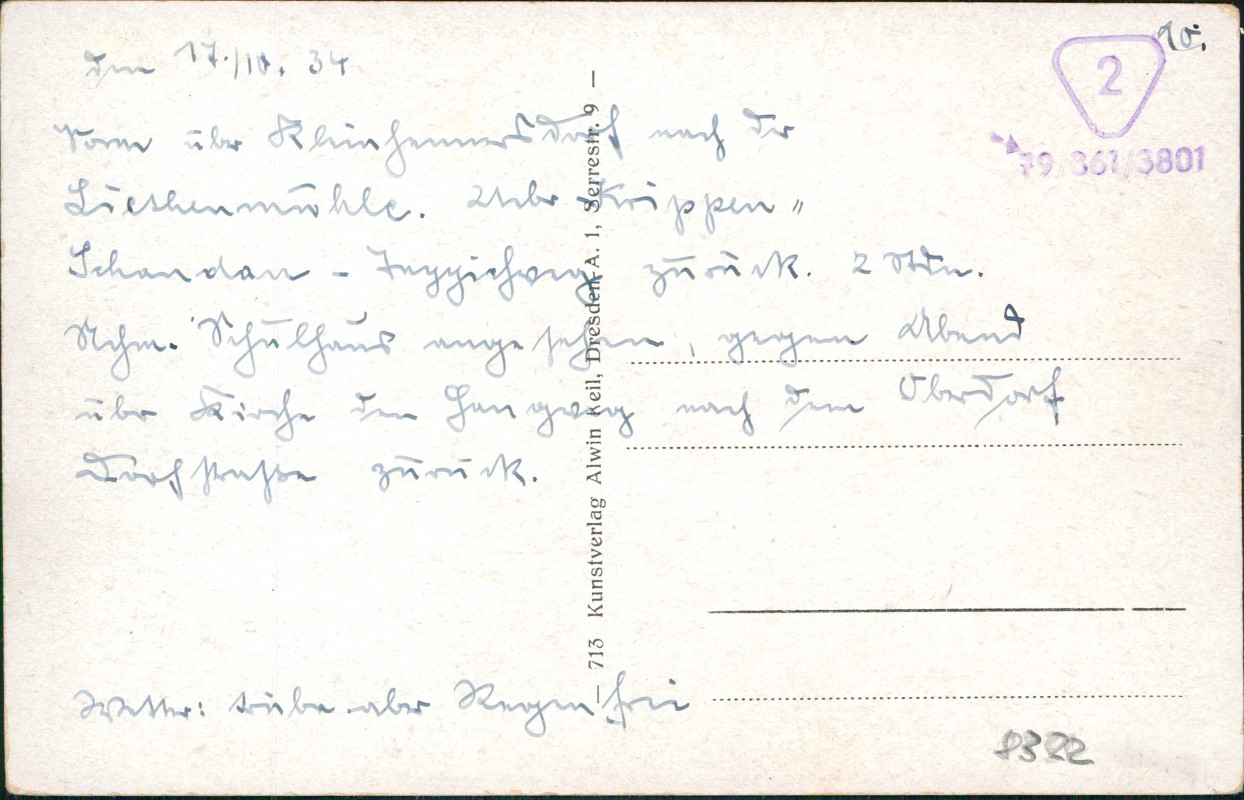 den 17./10. 34
10.
2
79/361/3801
Vorm über Kleinhennersdorf nach der
Liethenmühle. Ueber Krippen "
Schandau - zurück. 2 Stdn.
Nchm. Schulhaus angesehen, gegen Abend
über Kirche den Hangweg nach dem Oberdorf
Dorfstraße zurück.
Wetter: trübe aber Regenfrei
— 713 Kunstverlag Alwin Keil, Dresden-A. 1, Serrestr. 9 —
8322